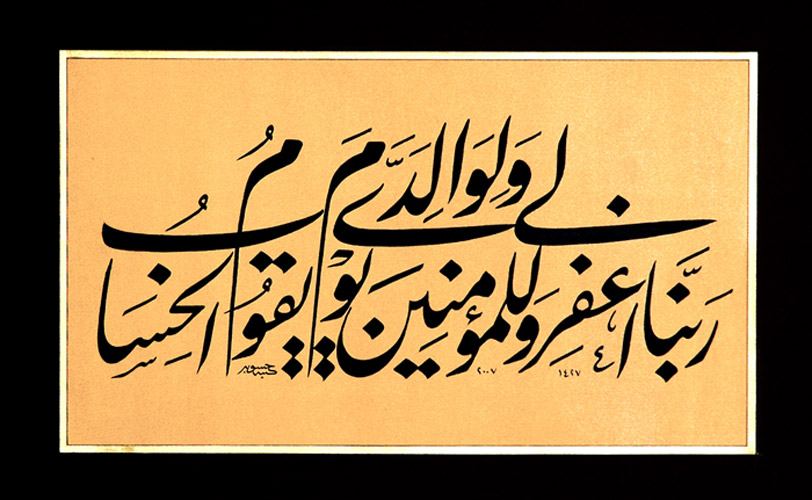 رَبَّنَا اغفِر لي وَلِوَالِدَيَّ وَللمؤمِنِينَ يَوْمَ يَقُومُ الحِسَابُ
١٤٢٧
٢٠٠٧